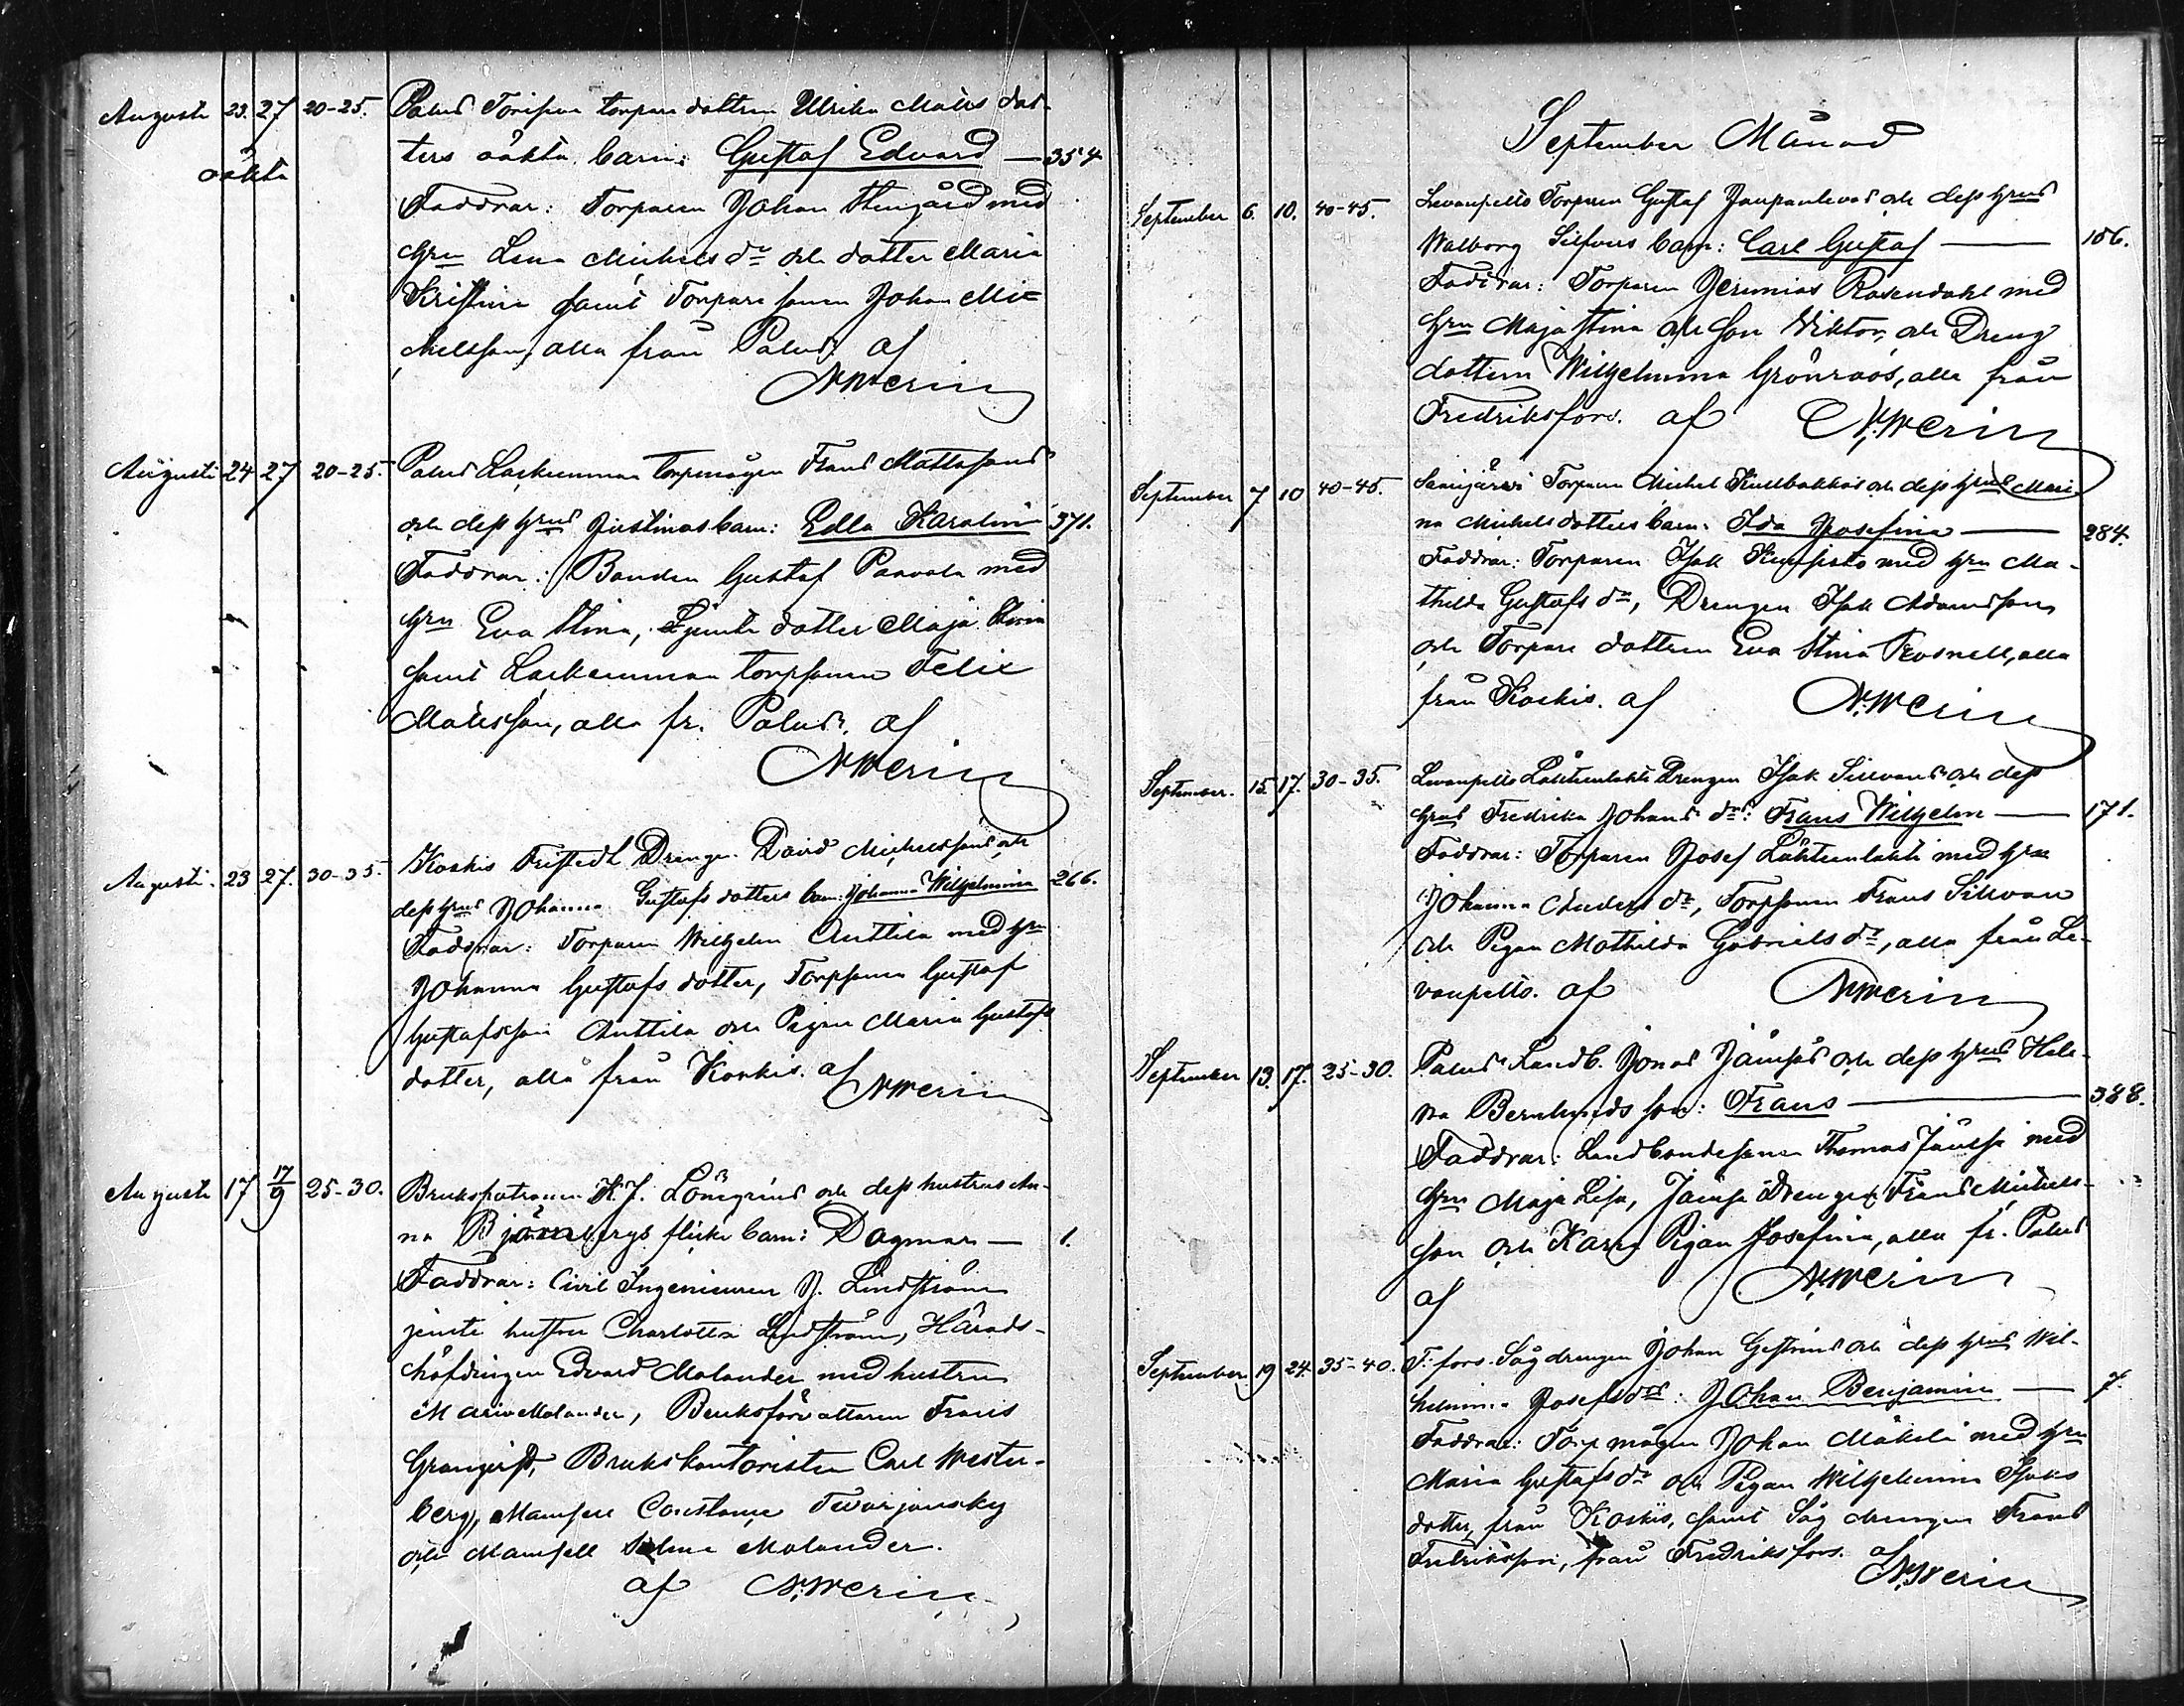 Augusti 23. 27 20-25. Palus torpare dottren Ulrika Matts dot-
oäkta ters oäkta barn: Gustaf Edvard — 354
Faddrar: Torparen Johan Stengård med
hru Lena Michels dr och dotter Maria
Kristina samt Torpare sonen Johan Mi-
chelsson, alla från Palus. af
N. Werin
Augusti 24 27 20-25. Palus Laskenman torpmågen Frans Mattssons
och dess hrus Justinas barn: Edla Karolina 371.
Faddrar: Bonden Gustaf Paavola med
hru Eva Stina, dotter Maja Stina
samt Laskenman torpsonen Felix
Matsson, alla fr. Palus. af
N Werin
Augusti. 23 27. 30-35. Koskis Fristedt Drengen David Michelssons och
dess hrus Johanna Gustafs dotters barn: Johanna Wilhelmina 266.
Faddrar: Torparen Wilhelm Anttila med hru
Johanna Gustafs dotter, Torpsonen Gustaf
Gustafsson Anttila och Pigan Maria Gustafs
dotter, alla från Koskis. af
N Werin
Augusti 17 17/9 25-30. Brukspatronen K. J. Lönegrens och dess hustrus An-
na Björnbergs flicke barn: Dagmar — 1.
Faddrar: Civil Ingenieuren J. Lindström
jemte hustru Charlotta Lindström, Härads-
höfdingen Edvard Molander med hustru
Maria Molander, Bruksförvaltaren Frans
Granqvist, Brukskontoristen Carl Wester-
berg, Mamsell Constance Twarjansky
och Mamsell Selma Molander.
af N. Werin
September Månad
September 6. 10. 40-45. Levanpelto Torparen Gustaf och dess hrus
Walborg Silfvers barn: Carl Gustaf — 106.
Faddrar: Torparen Jeremias Rosendahl med
hru Maja Stina och Son Viktor, och Dreng
dottern Wilhelmina Grönroos, alla från
Fredriksfors. af N. Werin
September 7 10 40-45. Saarijärvi Torparen Michel Kullbakkas och dess hrus Mari-
na Michelsdotters barn. Ida Josefina — 284.
Faddrar: Torparen Isak med hru Ma-
thilda Gustafs dr, Drengen Isak Adamsson
och Torpare dottren Eva Stina Rosnell, alla
från Koskis. af N. Werin
September. 15. 17. 30-35. Levanpelto Lähteenlahti Drengen Isak Sillvans och dess
hrus Fredrika Johans drs: Frans Wilhelm — 171.
Faddrar: Torparen Josef Lähteenlahti med hru
Johanna Anders dr, Torpsonen Frans Sillvan
och Pigan Mathilda Gabriels dr, alla från Le-
vanpelto. af N Werin
September 13. 17. 25-30. Palus Landb. Jonas Jämsäs och dess hrus Hele-
na Bernhards son: Frans — 388.
Faddrar: Landbondesonen Thomas Jämsä med
hru Maja Lisa, Jämsä Drengen Frans Michels-
son och Karra Pigan Josefina, alla fr. Palus
af N. Werin
September 19 24. 35-40. F:fors. Sågdrengen Johan Gestrins och dess hrus Wil-
helmina Josefs drs: Johan Benjamin — 7.
Faddrar: Torpmågen Johan Mäkelä med hru
Maria Gustafs dr och Pigan Wilhelmina Isaks
dotter, från Koskis, samt Såg drengen Frans
Fredriksson, från Fredriksfors. af
N. Werin